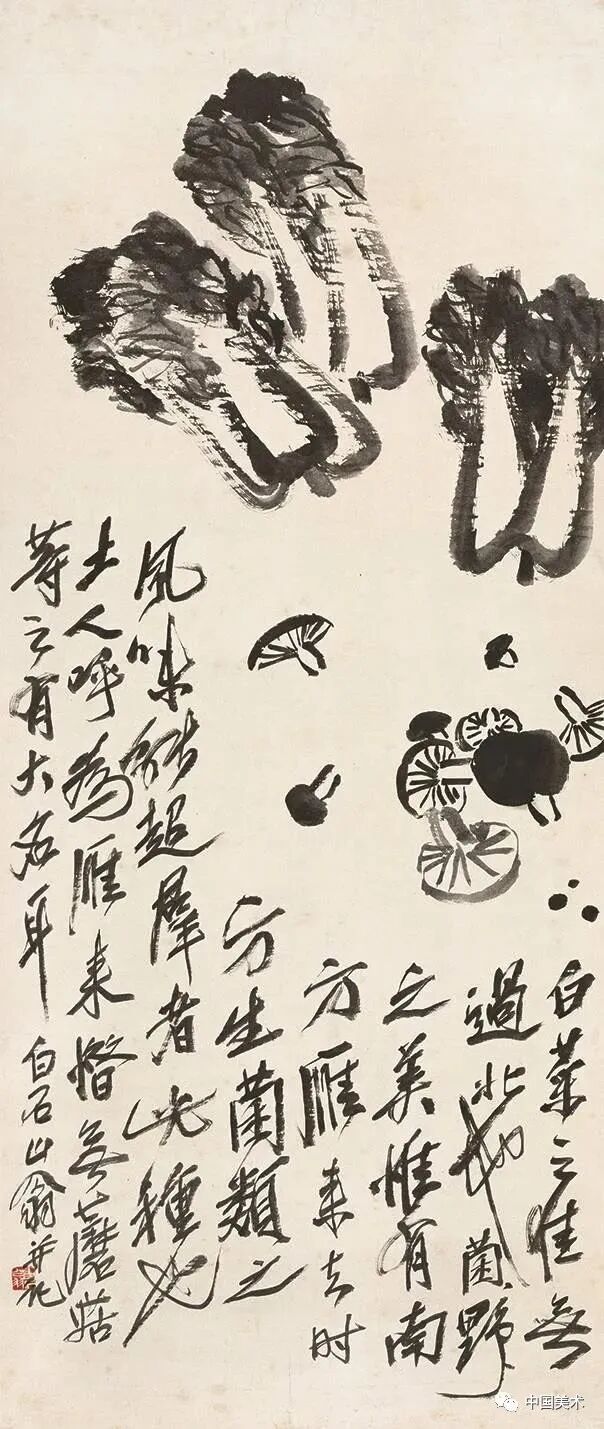 白菜之佳無
過北地菌野
之美惟有南
方雁來去时
方生菌類之
風味能超羣者此種也
土人呼為雁來無蘑菇
等之有大名耳 白石山翁并記
中国美术